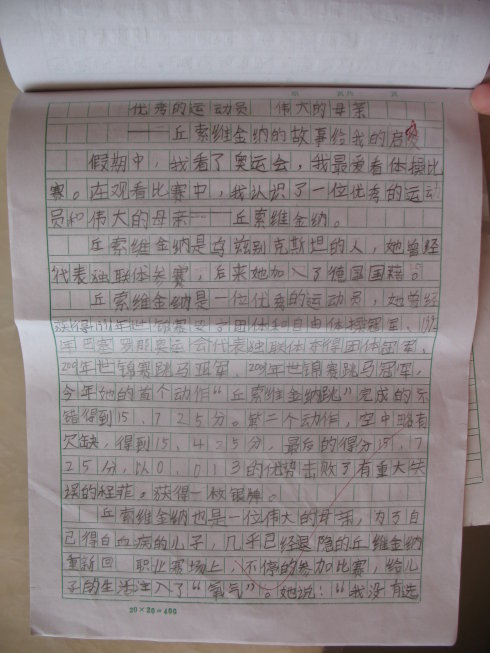 优秀的运动员 伟大的母亲
——丘索维金纳的故事给我的启发
假期中，我看了奥运会，我最爱看体操比
赛。在观看比赛中，我认识了一位优秀的运动
员和伟大的母亲——丘索维金纳。
丘索维金纳是乌兹别克斯坦的人，她曾经
代表独联体参赛，后来她加入了德国国籍。
丘索维金纳是一位优秀的运动员，她曾经
获得1991年世锦赛女子团体和自由体操冠军、1992
年巴塞罗那奥运会代表独联体夺得团体冠军、
年世锦赛跳马亚军、年世锦赛跳马冠军，
今年她的首个动作“丘索维金纳跳”完成的不
错得到15.725分。第二个动作，空中略有
欠缺，得到15.425分，最后的得分15.7
25分，以0.013的优势击败了有重大失
误的程菲。获得一枚银牌。
丘索维金纳也是一位伟大的母亲，为了自
己得白血病的儿子，几乎已经退隐的丘维金纳
重新回 职业赛场上，不停的参加比赛，给儿
子的生活注入了“氧气”。她说：“我没有选
20×20=400